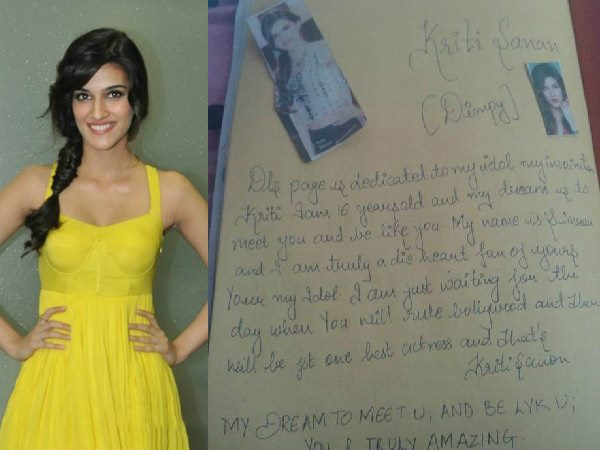 Kriti Sanon
[Dimpy]
Dis page is dedicated to my idol, my inspiration
Kriti I am 16 years old and my dream is to
meet you and be like you. My name is
and I am truly a die heart fan of yours
Your my Idol. I am just waiting for the
day when You will rule bollywood and there
will be jst one best actress and that's
Kriti Sanon
MY DREAM TO MEET U, AND BE LYK U;
YOU R TRULY AMAZING.